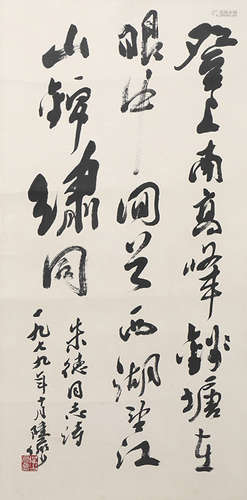 登上南高峰钱塘在
眼中回首西湖望江
山锦绣同
朱德同志诗
一九七九年十月陆俨少